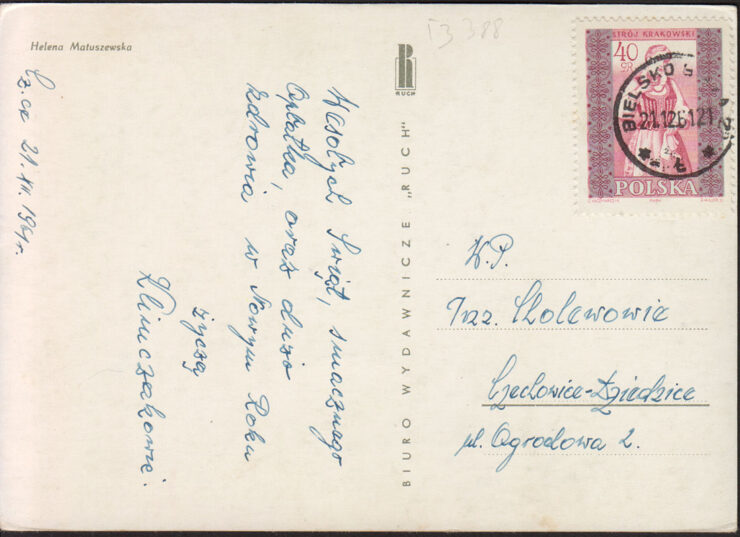 Helena Matuszewska
13 388
R
RUCH
STRÓJ KRAKOWSKI
40
GR
POLSKA
BIELSKO
21.12.61.21
Cz-ce 21. XII. 1961r.
Wesołych Świąt, smacznego
Opłatka, oraz dużo
zdrowia w Nowym Roku
życzą
Klimczakowie.
BIURO WYDAWNICZE „RUCH"
W.P.
Inż.
Czechowice-Dziedzice
ul. Ogrodowa 2.